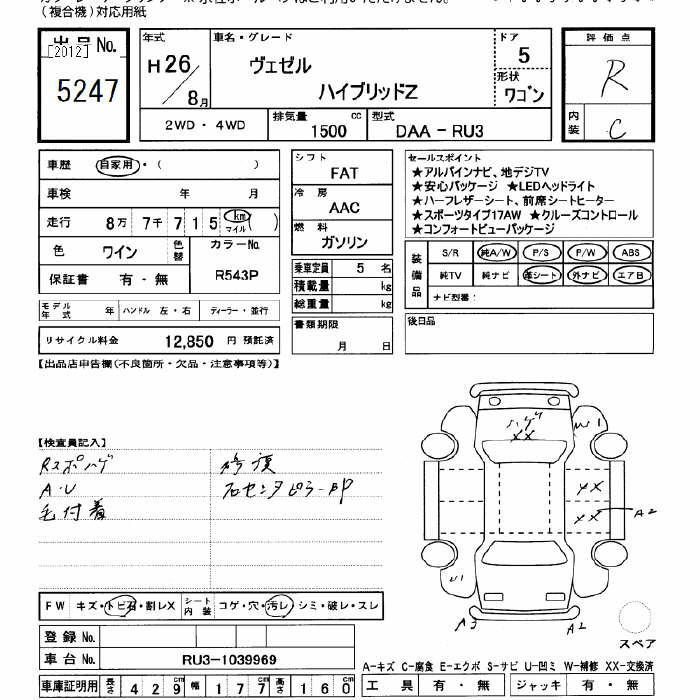 (複合機)対応用紙
出品No.
[2012]
5247
年式
H26
8月
車名・グレード
ヴェゼル
ハイブリッドZ
ドア
5
形状
ワゴン
2WD・4WD
排気量
1500 cc
型式
DAA-RU3
評価点
R
内装
C
車歴 自家用・( )
車検 年 月
走行 8万 7千 7 1 5 km マイル ( )
色 ワイン 色替
カラーNo.
R543P
保証書 有・無
モデル年式 年 ハンドル 左・右 ディーラー・並行
リサイクル料金 12,850 円 預託済
シフト
FAT
冷房
AAC
燃料
ガソリン
乗車定員 5 名
積載量 kg
総重量 kg
書類期限
月 日
セールスポイント
★アルパインナビ、地デジTV
★安心パッケージ ★LEDヘッドライト
★ハーフレザーシート、前席シートヒーター
★スポーツタイプ17AW ★クルーズコントロール
★コンフォートビューパッケージ
装備品
S/R 純A/W P/S P/W ABS
純TV 純ナビ 革シート 外ナビ エアB
ナビ型番:
後日品
【出品店申告欄(不良箇所・欠品・注意事項等)】
【検査員記入】
Rスポハゲ
A・U
毛付着
修復
右センタピラー凹
ハゲ
XX
W1
XX
XX
A2
U1
A3
A2
スペア
FW キズ・トビ石・割レX シート内装 コゲ・穴・汚レ・シミ・破レ・スレ
登録No.
車台No. RU3-1039969
車庫証明用 長さ 429 cm 幅 177 cm 高さ 160 cm
A-キズ C-腐食 E-エクボ S-サビ U-凹ミ W-補修 XX-交換済
工具 有・無 ジャッキ 有・無